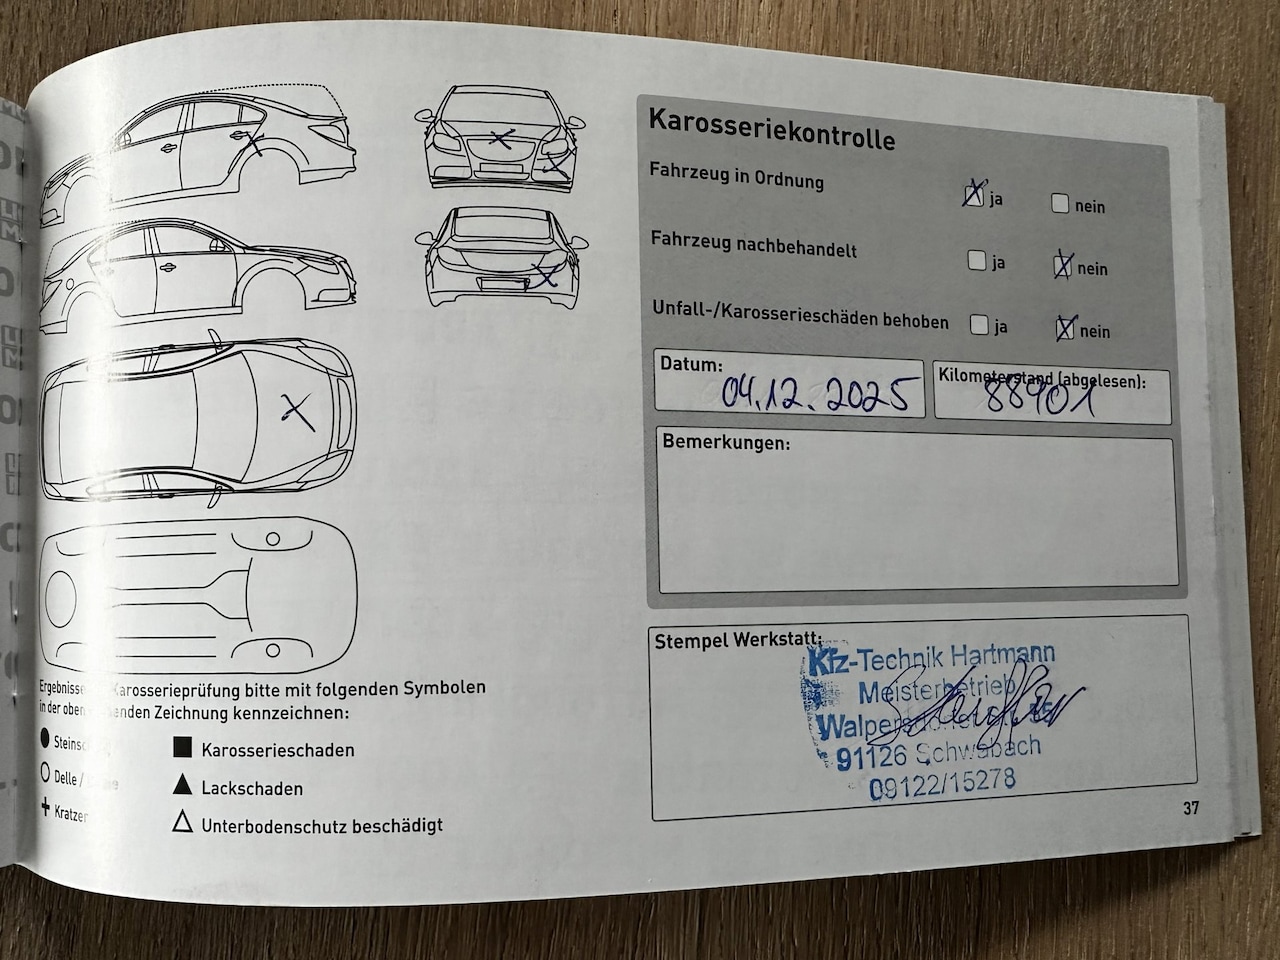 Karosseriekontrolle
Fahrzeug in Ordnung
ja
nein
Fahrzeug nachbehandelt
ja
nein
Unfall-/Karosserieschäden behoben
ja
nein
Datum:
04.12.2025
Kilometerstand (abgelesen):
88901
Bemerkungen:
Stempel Werkstatt:
Kfz-Technik Hartmann
Meisterbetrieb
91126 Schwabach
09122/15278
Karosserieprüfung bitte mit folgenden Symbolen
in der oben Zeichnung kennzeichnen:
Delle /
Kratzer
Karosserieschaden
Lackschaden
Unterbodenschutz beschädigt
37